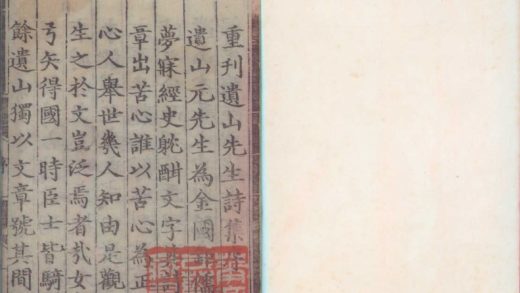 重刊遺山先生詩集
遺山元先生為金國
夢寐經史躭酣文字
章出苦心誰以苦心為正
心人舉世幾人知由是觀
生之於文豈泛焉者㢤女
弓矢得國一時臣士皆騎
餘遺山獨以文章號其間